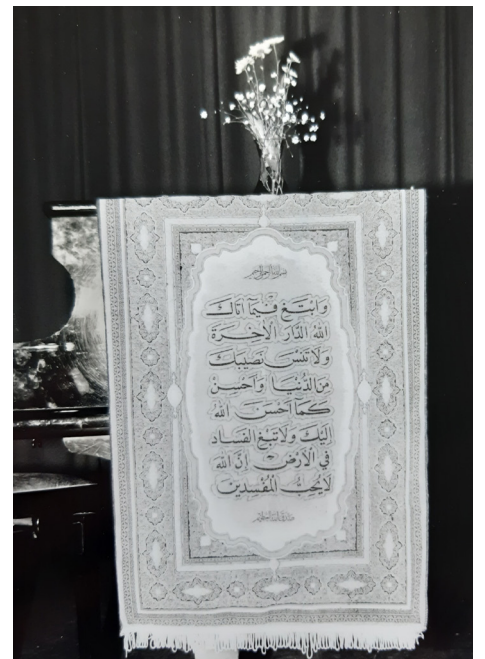 بسم الله الرحمن الرحيم
وَابْتَغِ فِيمَآ اٰتٰىكَ
اللّٰهُ الدَّارَ الْاٰخِرَةَ
وَلَا تَنْسَ نَصِيبَكَ
مِنَ الدُّنْيَا وَاَحْسِنْ
كَمَآ اَحْسَنَ اللّٰهُ
اِلَيْكَ وَلَا تَبْغِ الْفَسَادَ
فِي الْاَرْضِ اِنَّ اللّٰهَ
لَا يُحِبُّ الْمُفْسِدِينَ
صدق الله العظيم